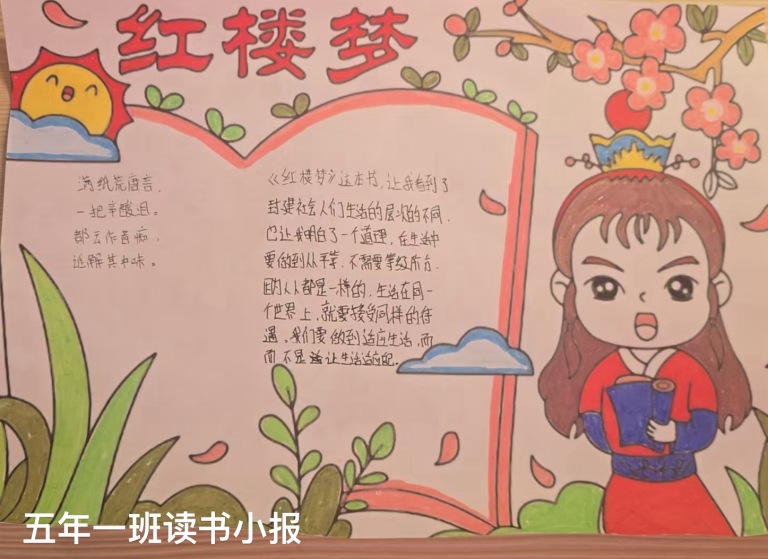 红楼梦
满纸荒唐言，
一把辛酸泪。
都云作者痴，
谁解其中味。
《红楼梦》这本书，让我看到了
封建社会人们生活的层次的不同，
它让我明白了一个道理，在生活中
要做到人人平等，不需要等级
因为人人都是一样的，生活在同一
个世界上，就要接受同样的待
遇。我们要做到适应生活，而
不是让生活适应
五年一班读书小报